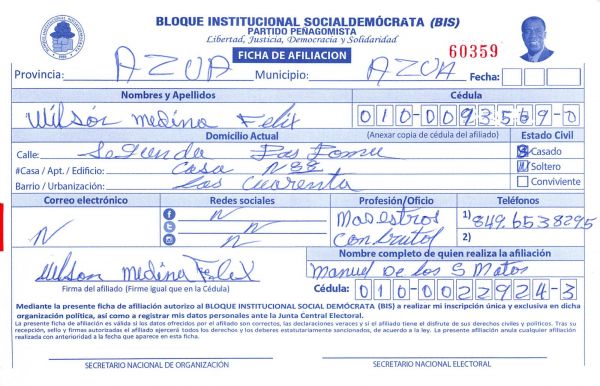 BLOQUE INSTITUCIONAL SOCIALDEMÓCRATA (BIS)
PARTIDO PEÑAGOMISTA
Libertad, Justicia, Democracia y Solidaridad
FICHA DE AFILIACION
60359
Provincia: AZUA Municipio: AZUA Fecha:
Nombres y Apellidos Cédula
Wilsón medina Felix 010-0093569-0
Domicilio Actual (Anexar copia de cédula del afiliado) Estado Civil
Calle: Segunda Casado
#Casa / Apt. / Edificio: Casa Soltero
Barrio / Urbanización: Las Cuarenta Conviviente
Correo electrónico Redes sociales Profesión/Oficio Teléfonos
N N Maestros 1) 849.6538295
N Condrutor 2)
N
Nombre completo de quien realiza la afiliación
Wilson medina Felix Manuel De los S Matos
Firma del afiliado (Firme igual que en la Cédula) Cédula: 010-0022924-3
Mediante la presente ficha de afiliación autorizo al BLOQUE INSTITUCIONAL SOCIAL DEMÓCRATA (BIS) a realizar mi inscripción única y exclusiva en dicha
organización política, así como a registrar mis datos personales ante la Junta Central Electoral.
La presente ficha de afiliación es válida si los datos ofrecidos por el afiliado son correctos, las declaraciones veraces y si el afiliado tiene el disfrute de sus derechos civiles y políticos. Tras su
recepción, sello y firmas autorizadas el afiliado ejercerá todos los derechos y los deberes estatutariamente sancionados, de acuerdo a la ley. La presente afiliación anula cualquier afiliación
realizada con anterioridad a la fecha que aparece en esta ficha.
SECRETARIO NACIONAL DE ORGANIZACIÓN SECRETARIO NACIONAL ELECTORAL